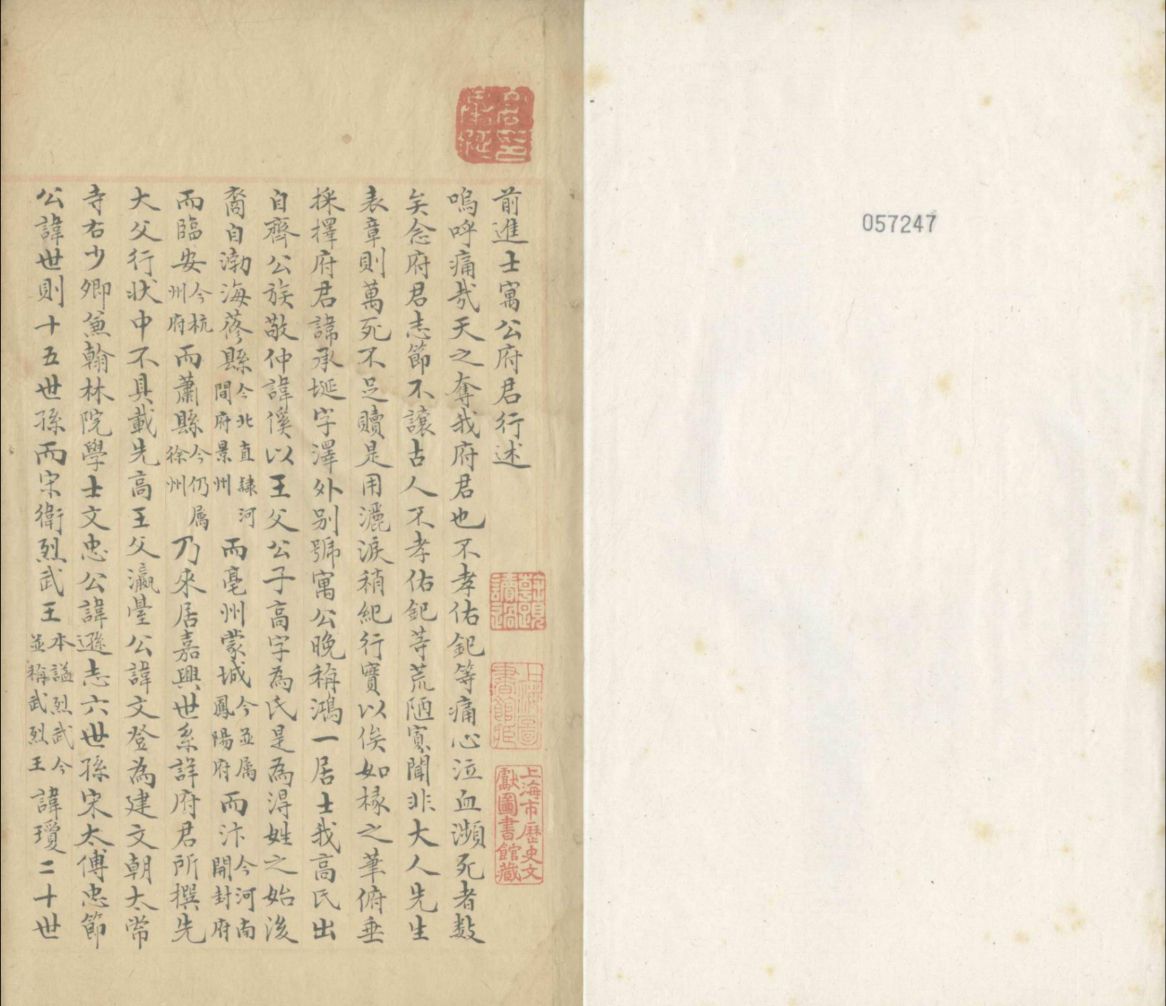 057247
前進士寓公府君行述
嗚呼痛哉天之奪我府君也不孝佑釲等痛心泣血瀕死者數
矣念府君志節不讓古人不孝佑釲等荒陋寡聞非大人先生
表章則萬死不足贖是用灑淚稍紀行實以俟如椽之筆俯垂
採擇府君諱承埏字澤外別號寓公晚稱鴻一居士我高氏出
自齊公族敬仲諱傒以王父公子高字為氏是為得姓之始後
裔自渤海蓚縣今北直隸河間府景州而亳州蒙城今並属鳳陽府而汴今河南開封府
而臨安今杭州府而蕭縣今仍属徐州乃來居嘉興世系詳府君所撰先
大父行狀中不具載先高王父瀛臺公諱文登為建文朝太常
寺右少卿兼翰林院學士文忠公諱遜志六世孫宋太傅忠節
公諱世則十五世孫而宋衛烈武王本謚烈武今並稱武烈王諱瓊二十世
上海圖書館藏
上海市歷史文獻圖書館藏